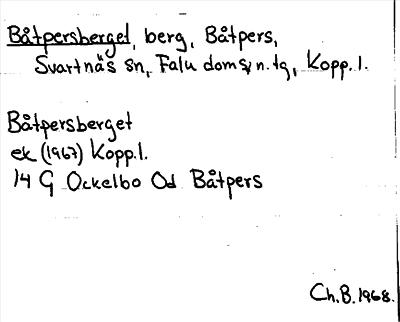 Båtpersberget, berg, Båtpers,
Svartnäs sn, Falu doms, n. tg, Kopp. l.
Båtpersberget
ek (1967) Kopp. l.
14 G Ockelbo Od Båtpers
Ch. B. 1968.